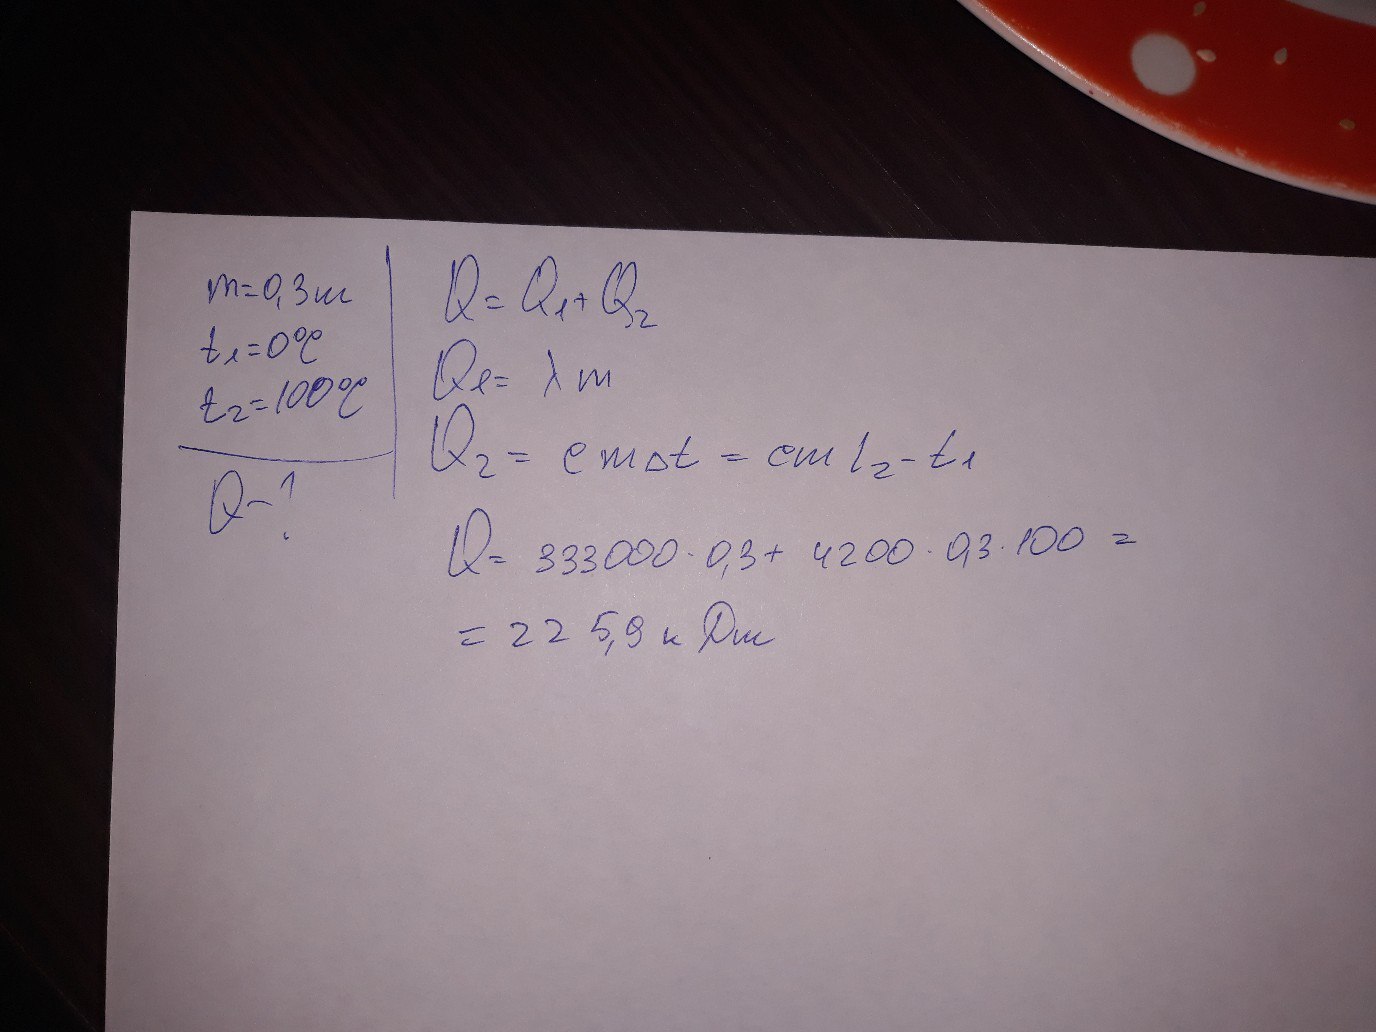 m=0,3т
t₁=0°C
t₂=100°C
Q-?
Q=Q₁+Q₂
Q₁= λm
Q₂= cmΔt = cm t₂-t₁
Q= 333000·0,3+ 4200·0,3·100 =
= 225,9 кДж